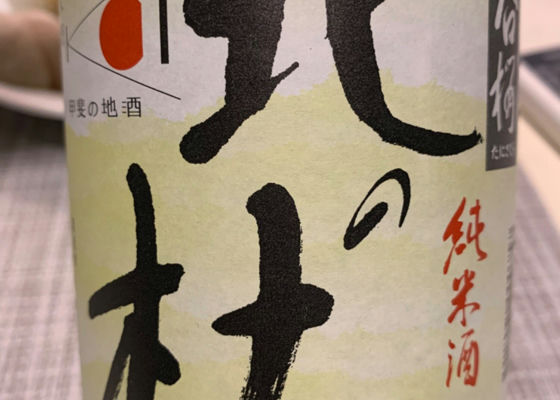 甲斐の地酒
谷櫻
たにざくら
北の杜
純米酒